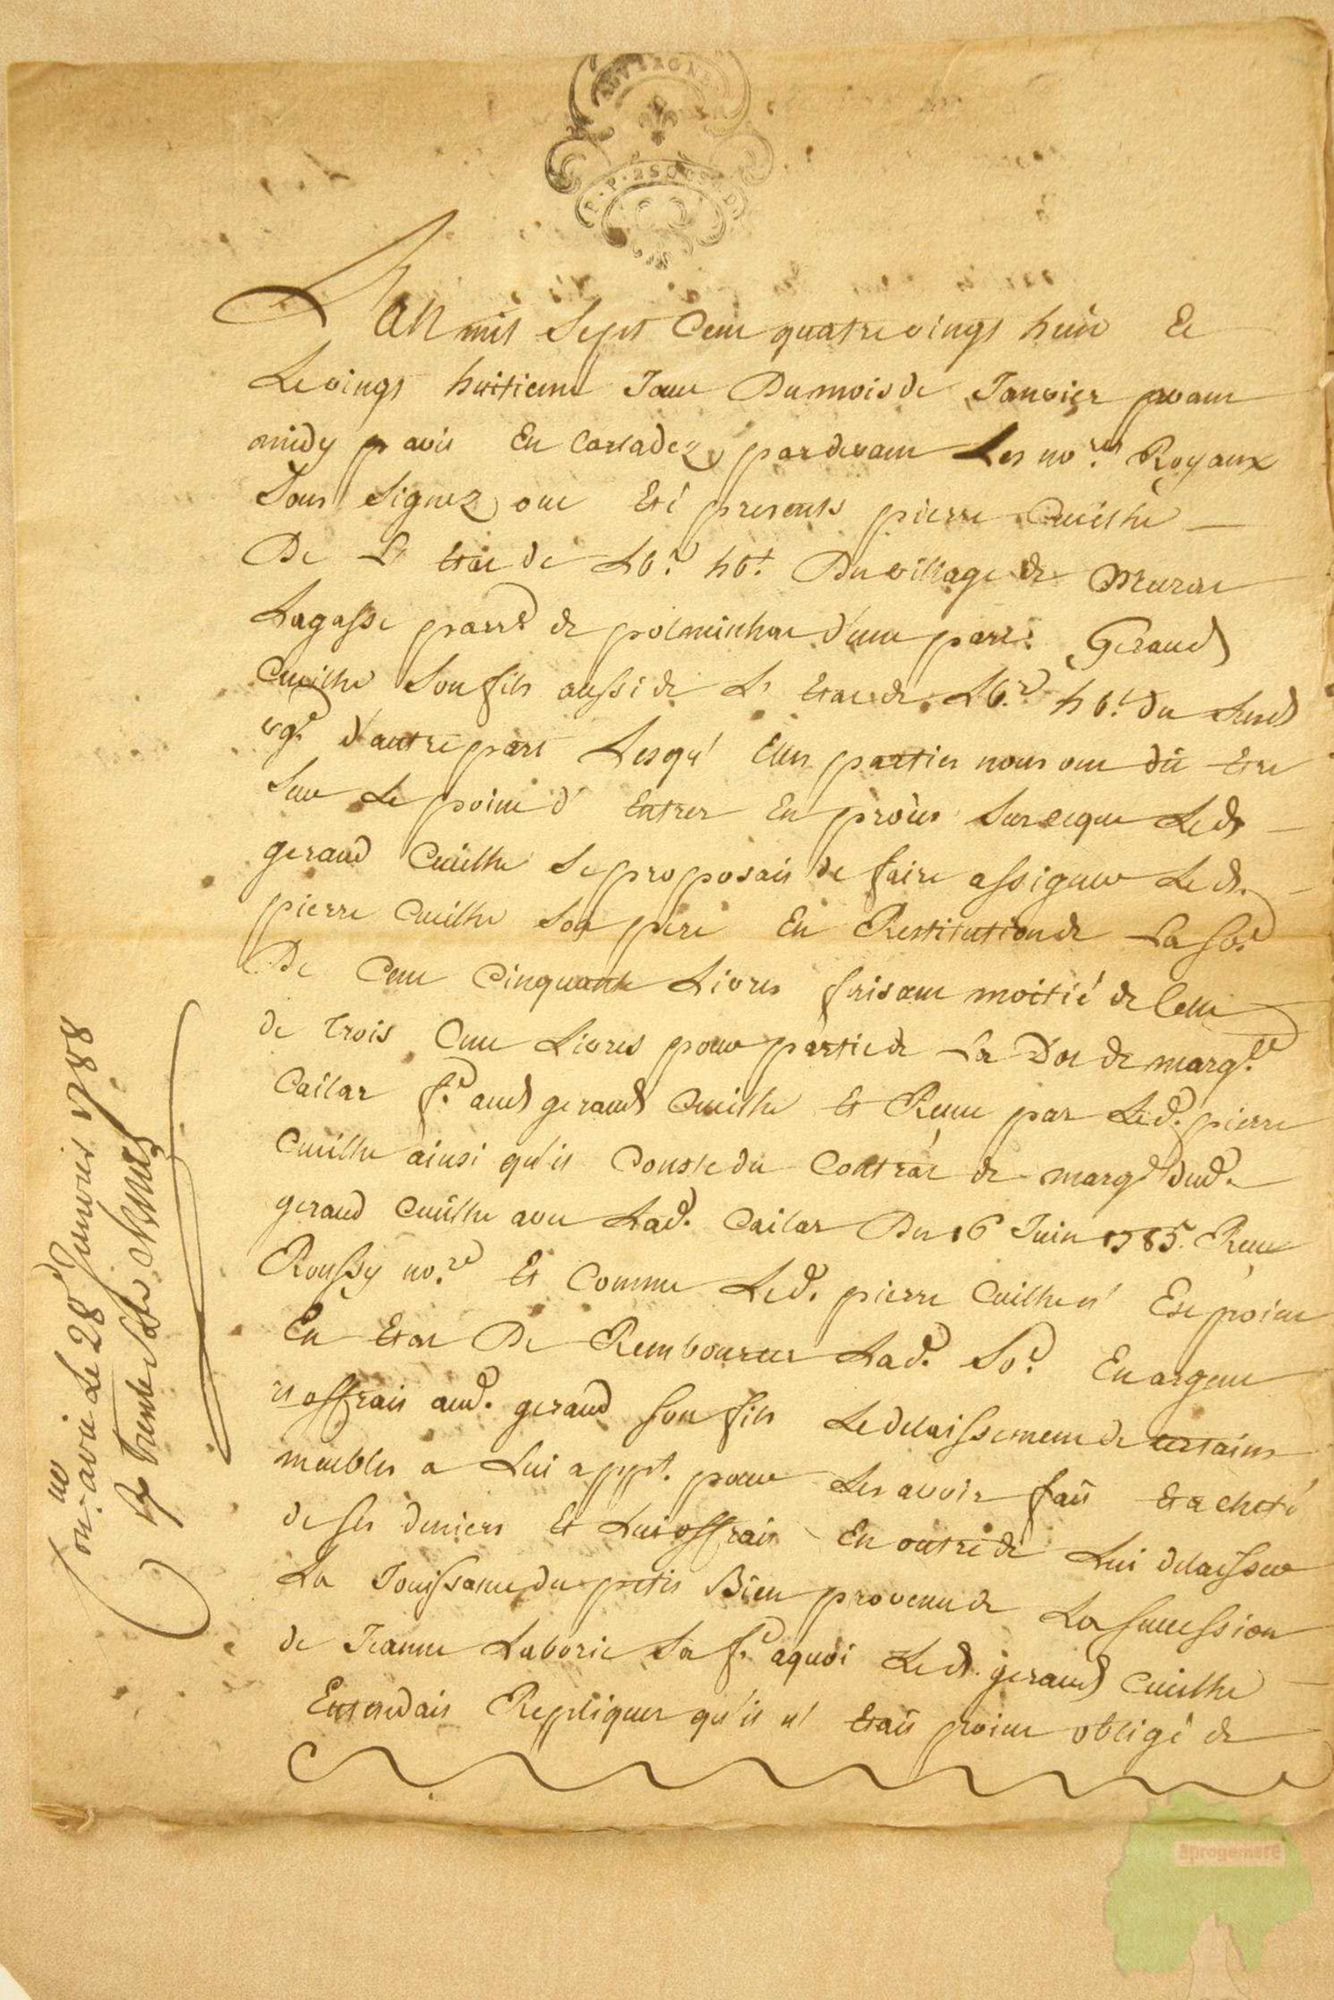 AUVERGNE
P. P. 2 SOLS
L'an mil sept Cent quatre vingt huit Et
Le vingt huitieme Jour Du mois de Janvier avant
midy avis En Carladez pardevant Les no.res Royaux
Sous signez ont Eté presents pierre Cueilhe
De L'Etat de Lb.r hb.t Du village de Murat
Lagasse parr.e de polminhac d'une part. Geraud
Cueilhe Son fils aussi de L'Etat de Lb.r hb.t du Susd
vg.e d'autre part Lesqu'Elles parties nous ont dit Etre
Sur Le point d'Entrer En procès Sur ceque Led
geraud Cueilhe Se proposait de faire assigner Led.
pierre Cueilhe Son pere En Restitution de La So.e
De Cent Cinquante Livres faisant moitié de Celle
de trois Cent Livres pour partie de La Dot de marg.te
Cailar f.e aud geraud Cueilhe Et Recue par Led. pierre
Cueilhe ainsi qu'il Conste du Contrat de marg.e dud.
geraud Cueilhe avec Lad. Cailar Du 16 Juin 1785. Recu
Roussy no.re Et Comme Led. pierre Cueilhe n'Est point
En Etat De Rembourcer Lad. So.e En argent
il offrait aud. geraud son fils Le delaissement de certains
meubles a Lui app.t. pour Les avoir fait Et acheté
de ses deniers Et Lui offrait En outre de Lui delaisser
La Jouissance du petit Bien provenu de La succession
de Jeanne Laborie Sa f.e aquoi Led. geraud Cueilhe
Entendait Repliquer qu'il n'Etait point obligé de
Con.lé a vic Le 28 Janvier 1788
R trente sols
aprogemere